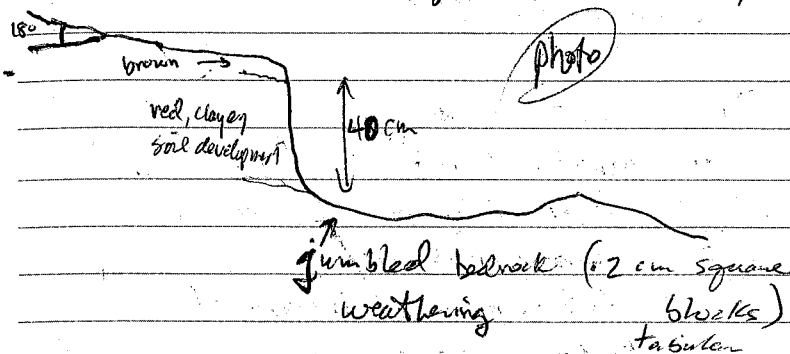 18°
brown →
photo
red, clayey
soil development
40 cm
jumbled bedrock (.2 cm square
weathering blocks)
tabular